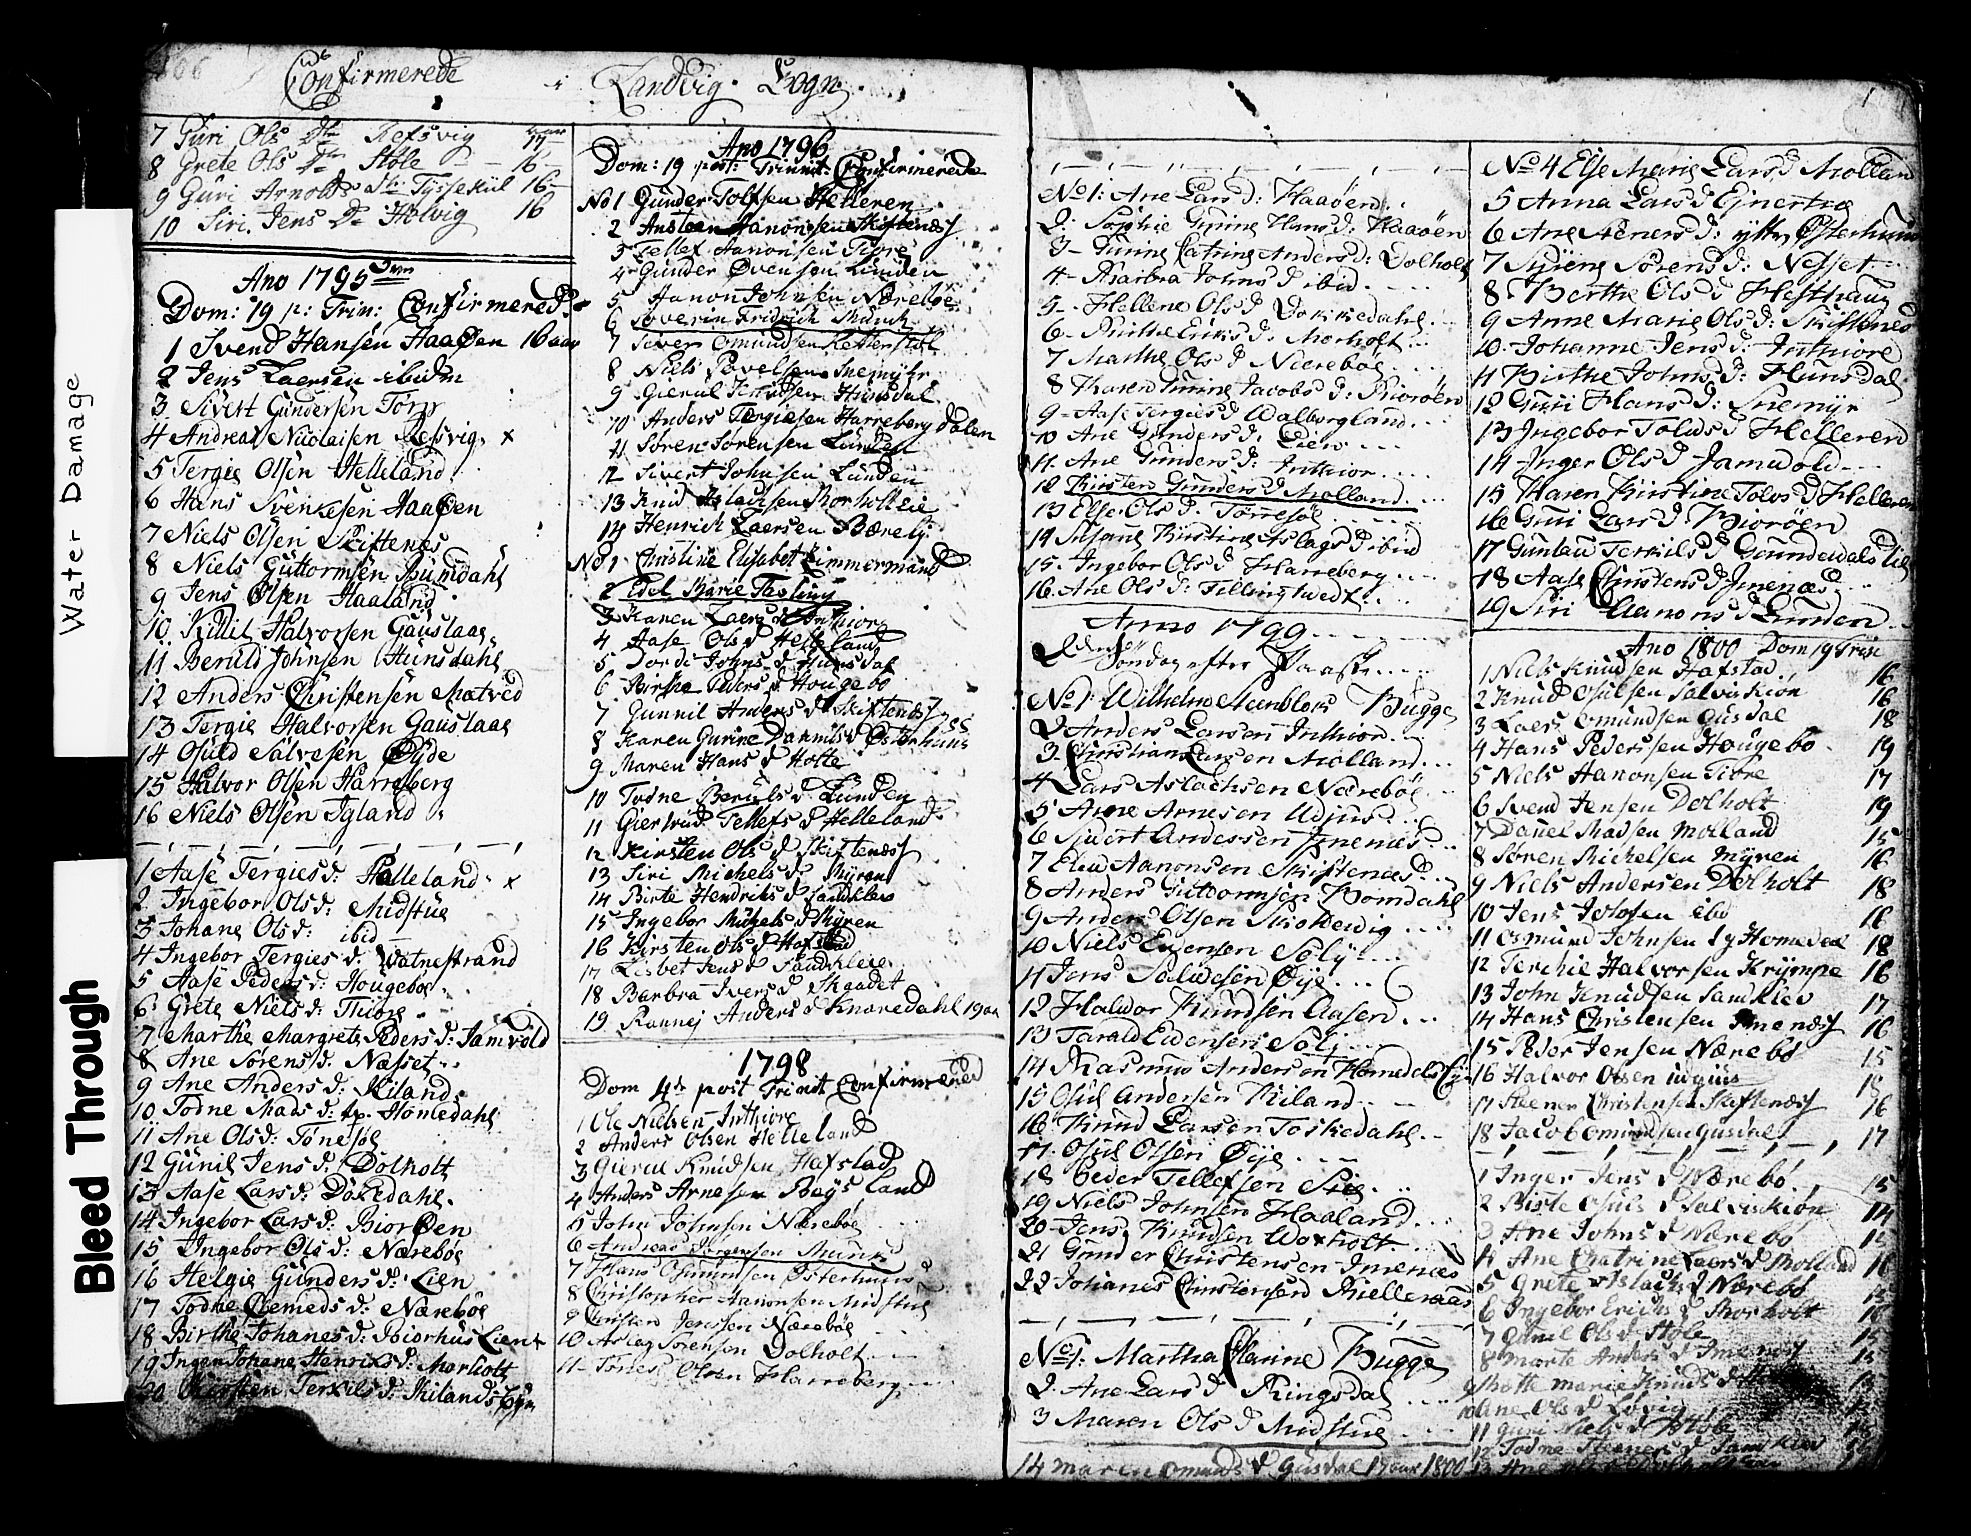 Confirmerede i Landvig Sogn
7 Guri Ols Dtr Refsvig 17
8 Grete Ols Dtr Støle 16
9 Guri Arnolds Dtr Tyssekiil 16
10 Siri Jens Dr Holvig 16
Ano 1795
Dom: 19 p: Trin: Confirmerede
1 Svend Hansen Haaøen 16 aar
2 Jens Laersen ibidm
3 Sivert Gundersen Torp
4 Andreas Nicolaisen Refsvig x
5 Tergie Olsen Helleland
6 Hans Svenkesen Haaøen
7 Niels Olsen Skiftenes
8 Niels Guttormsen Bumdahl
9 Jens Olsen Haaland
10 Killil Halvorsen Gauslaae
11 Beruld Johnsen Hunsdahl
12 Anders Christensen Mætved
13 Tergie Halvorsen Gauslaae
14 Osuld Salvesen Øyde
15 Halvor Olsen Harreberg
16 Niels Olsen Igland
1 Aase Tergies d: Helleland x
2 Ingebor Ols d: Midstue
3 Johane Ols d: ibid
4 Ingebor Tergies d: Watnestrand
5 Aase Peders d: Hougeboe
6 Grete Niels d: Thiore
7 Marthe Margrete Peders d: Jamvold
8 Ane Sørens d: Næsset
9 Ane Anders d: Kiland
10 Todne Mads d: Homledahl
11 Ane Ols d: Tønesøl
12 Gunil Jens d: Dolholt
13 Aase Lars d: Dokedahl
14 Ingebor Lars d: Biorøen
15 Ingebor Ols d: Nærebøe
16 Helgie Gunders d: Lien
17 Todne Clemeds d: Nærebøe
18 Birthe Johanes d: Biorhus Lien
19 Ingen Johane Henriks d: Morholt
20 Kirsten Terkils d: Kilands
Ano 1796
Dom: 19 post: Trinit: Confirmerede
No 1 Gunder Tolfsen Helleren
2 Austeen Aanonsen Skiftenæs
3 Tellef Aanonsen Tiøre
4 Gunder Øvensen Lunden
5 Aanon Johnsen Nærebøe
6 Soverin Fridrich Munch
7 Siver Omundsen
8 Niels Povelsen Snemyhr
9 Gierul Knudsen Hunsdal
10 Anders Tergiesen Harreberg dalen
11 Søren Sørensen Lunden
12 Sivert Johnsen Lunden
13 Knud Aslachsen Morholtlie
14 Henrich Laersen Bærely
No 1 Christine Elisabet Zimmermand
2 Edel Marie Fasting
3 Karen Laers d Inthiore
4 Aase Ols d Helleland
5 Dorde Johns d Hunsdal
6 Birthe Peders d Hougebo
7 Gunnil Anders d Skiftenæs
8 Karen Gurine Danniels d Østerhuus
9 Maren Hans d Holte
10 Todne Beruls d Lunden
11 Giertrud Tellefs d Helleland
12 Kirsten Ols d Skiftenæs
13 Siri Michels d Myren
14 Birte Hendriks d Sandklev
15 Ingebor Michels d Myren
16 Kirsten Ols d Hafstad
17 Lisbet Jens d Sandkleiv
18 Barbra Ivers d Skaadet
19 Rannej Anders d Knaredahl 19 aar
1798
Dom 4de post Trinit Confirmered
1 Ole Nielsen Inthiore
2 Anders Olsen Helleland
3 Gierul Knudsen Hafstad
4 Anders Arnesen Bøysland
5 John Johnsen Nærebøe
6 Andreas Jørgensen Munk
7 Hans Osmundsen Østerhuus
8 Christopher Aanonsen Midstue
9 Christen Jenssen Nærebøe
10 Aslag Sørenson Dolholt
11 Tønes Olsen Harreberg
No 1: Ane Lars d: Haaøen
2 Sophie Gurine Hans d: Haaøen
3 Gurine Catrine Anders d: Dolholt
4 Barbra Johns d ibid
5 Hellene Ols d Dokkedahl
6 Birthe Eriks d: Morholt
7 Marthe Ols d Nærebøe
8 Karen Gurine Jacobs d: Biorøen
9 Aase Tergies d Walborgland
10 Ane Gunders d: Lien
11 Ane Gunders d: Inthior
12 Kirsten Gunders d Molland
13 Else Ols d: Tørresøl
14 Susane Kirstine Aslags d ibid
15 Ingebor Ols d Harreberg
16 Ane Ols d: Fellingtvedt
Anno 1799
2den Søndag efter Paaske
No 1: Wilhelm Meenblok Bugge
2 Anders Larsen Inthior
3 Christian Larsen Molland
4 Lars Aslachsen Nærebøe
5 Arne Arnesen Udjus
6 Siuert Anderssen Jmenes
7 Elev Aanonsen Skiftenes
8 Anders Guttormsen Bomdahl
9 Anders Olsen
10 Niels Evensen Søly
11 Jens Salvesen Øye
12 Haldor Knudsen Aasen
13 Tarald Evensen Søly
14 Rasmus Andersen
15 Osul Andersen Kiland
16 Knud Larsen Toskedahl
17 Osul Olsen Øye
18 Peder Tellefsen
19 Niels Johnsen Haaland
20 Jens Knudsen Woxholt
21 Gunder Christensen Jmenes
22 Johanes Christensen Kielleraas
No 1: Martha Hanne Bugge
2 Ane Lars d Ringsdal
3 Maren Ols d Midstue
14 Maren Omunds d Gusdal 17 aar 1800
No 4 Else Marie Lars d Molland
5 Anna Lars d
6 Ane Reiners d: yttre Østerhuus
7 Sørens d: Nesset
8 Berthe Ols d Hesthaug
9 Anne Marie Ols d: Skiftenes
10 Johanne Jens d: Inthiore
11 Birthe Johns d: Hunsdal
12 Guri Hans d: Snemyr
13 Ingebor Tolvs d Helleren
14 Inger Ols d Jamvold
15 Karen Kirstine Tolvs d Helleren
16 Guri Lars d Biorøen
17 Gunlau Terkils d
18 Aase Christens d Jmenæs
19 Siri Aanons d Lunden
Ano 1800 Dom 19 Trin
1 Niels Knudsen Hafstad 16
2 Knud Osulsen Salviskion 16
3 Laers Omundsen Gusdal 18
4 Hans Pederssen Hougebo 19
5 Niels Aanonsen Tiøre 17
6 Svend Jensen Dolholt 19
7 Daniel Madsen Molland 15
8 Søren Michelsen Myren 16
9 Niels Andersen Dolholt 18
10 Jens ibid 16
11 Osmund Johnsen 18
12 Terchil Halvorsen Krympe 16
13 John Knudsen Sandklev 17
14 Hans Christensen Imenæs 16
15 Peder Jensen Nærebø 15
16 Halvor Olsen 18
17 Steener Christensen Skiftenæs 16
18 Jacob Omundsen Gusdal 17
1 Inger Jens d Nærebø 15
2 Birte Osuls d Salviskion 14
3 Ane Johns d Nærebø
4 Ane Chatrine Laers d Molland 16
5 Grete Aslachs d Nærebø
6 Ingebor Erichs d Morholt 16
7 Gunil Ols d Støle 15
8 Marte Anders d Imenes
9 Marie Knuds d
10 Ane Ols d
11 Guri Niels d Støle
12 Todne Steeners d Sandklev
13 Ane
Water Damage
Bleed Through